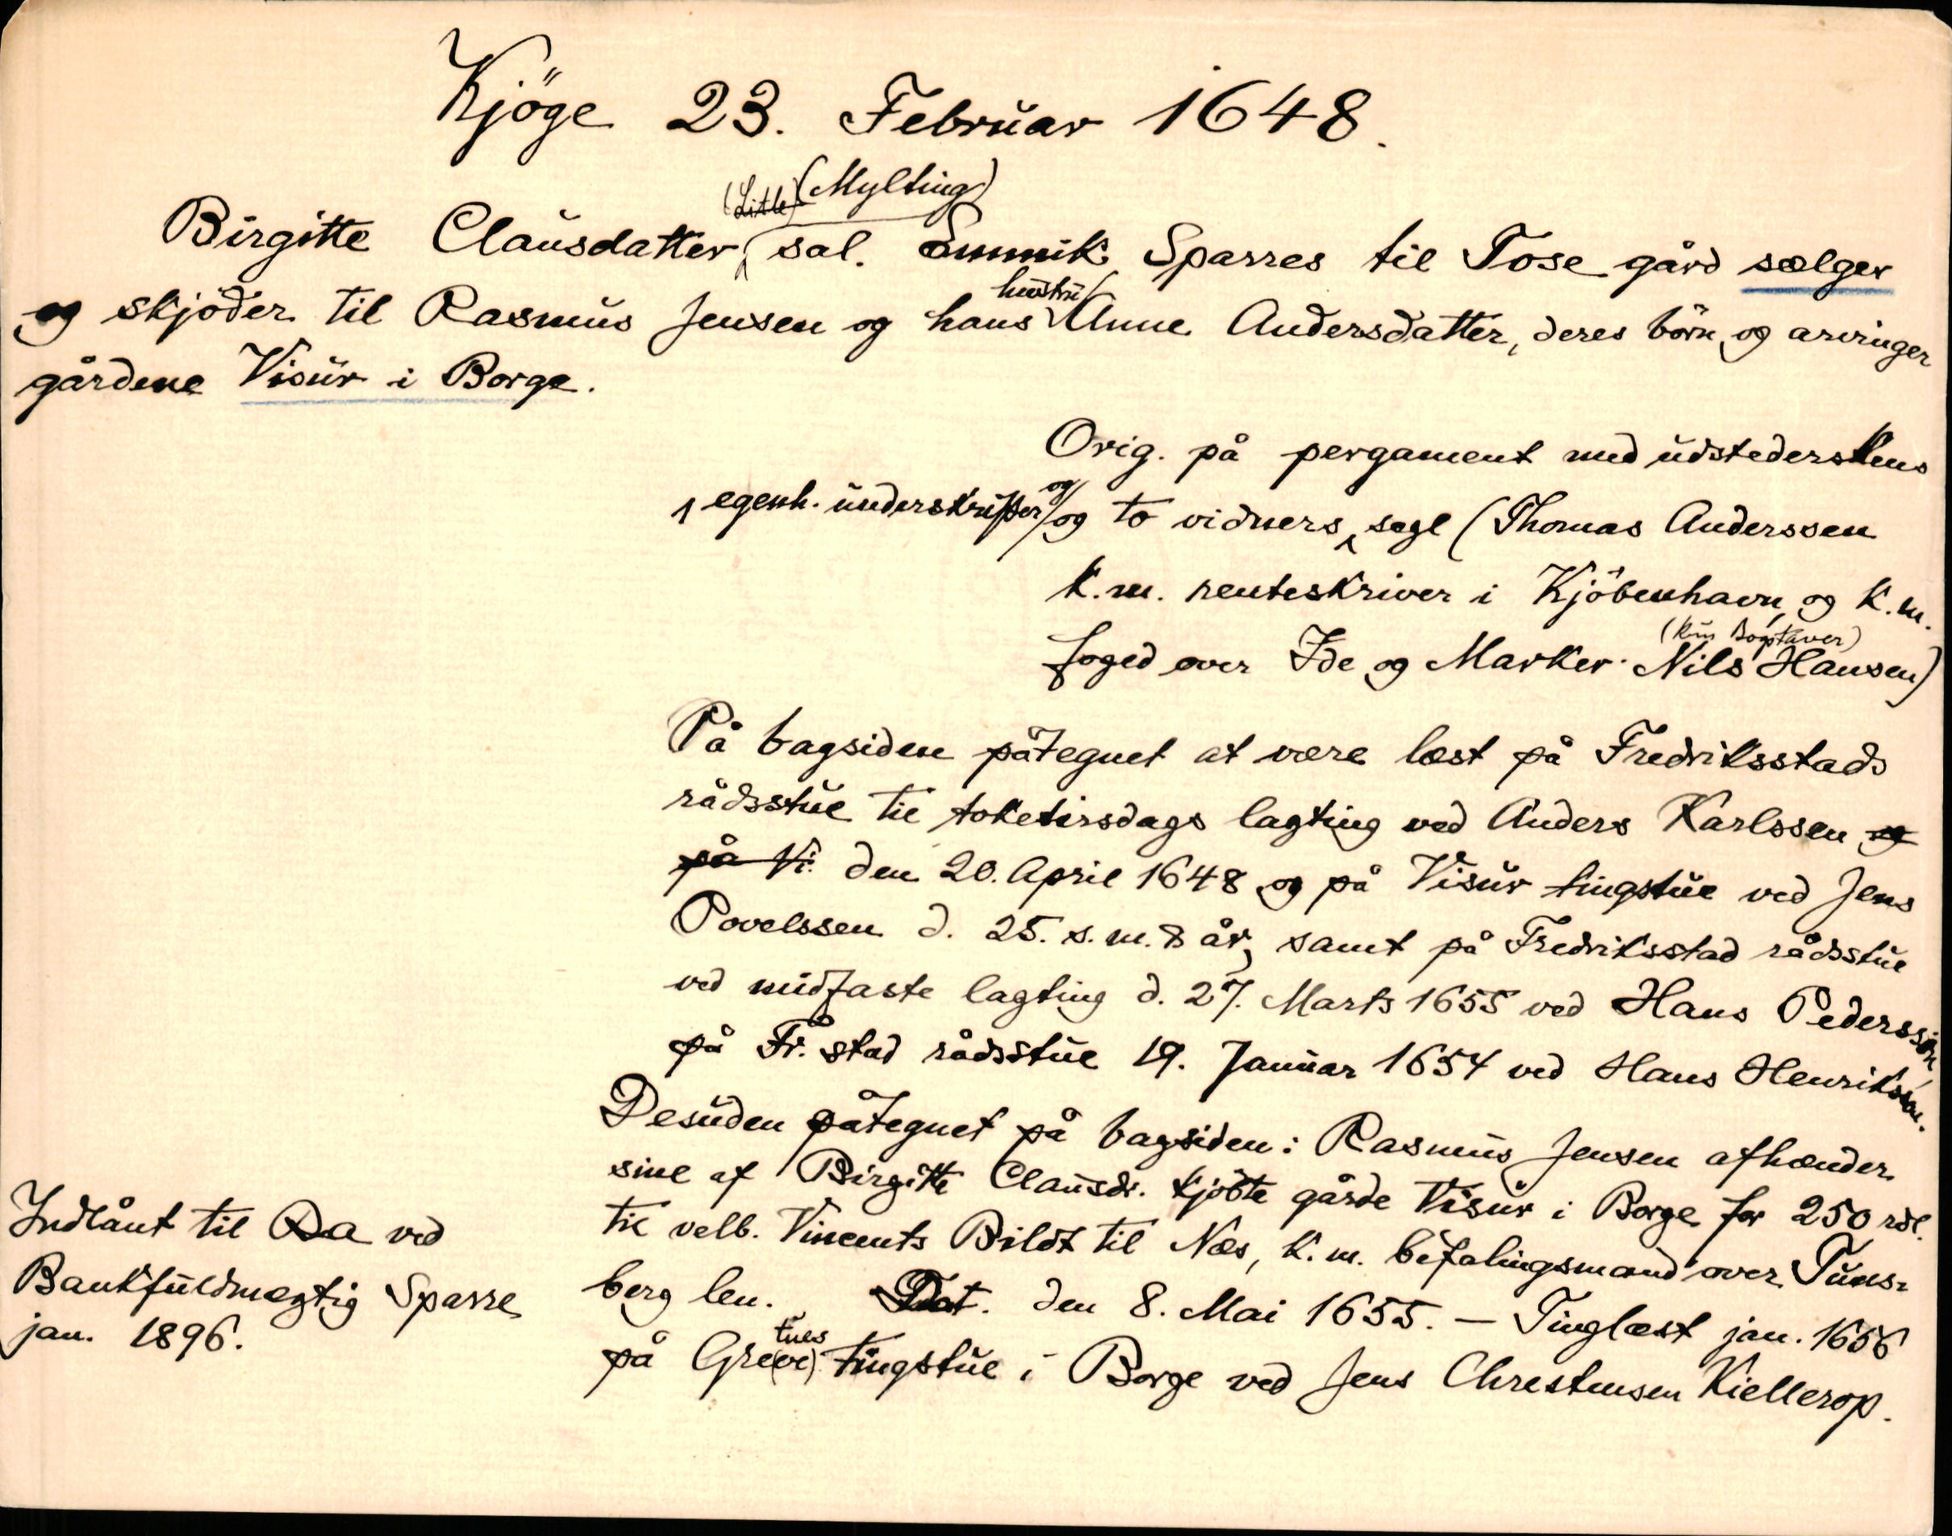 Kjöge 23. Februar 1648.
(Litle) (Mylting)
Birgitte Clausdatter, sal. Emmik Sparres til Tose gård sælger
hustru
og skjöder til Rasmus Jensen og hans Anne Andersdatter, deres börn og arvinger
gårdene Visur i Borge.
Orig. på pergament med udsteder​skens
egenh. underskrifter og og to vidners segl (Thomas Anderssen
k.m. renteskriver i Kjöbenhavn, og k.m.
(kun Bogstaver)
foged over Ide og Marker Nils Hansen)
På bagsiden påtegnet at være læst på Fredriksstads
rådsstue til toketirsdags lagting ved Anders Karlssen og
på Vi. den 20. April 1648 og på Visur tingstue ved Jens
Povelssen d. 25. s. m. & år, samt på Fredriksstad rådsstue
ved midfaste lagting d. 27. Marts 1655 ved Hans Pederssön,
på Fr.stad rådsstue 19. Januar 1654 ved Hans Henrikssen.
Desuden påtegnet på bagsiden: Rasmus Jensen afhænder
sine af Birgitte Clausdr. kjöbte gårde Visur i Borge for 250 rdl.
til velb. Vincents Bildt til Næs, k.m. befalingsmand over Tuns-
berg len. Dat. den 8. Mai 1655. – Tinglæst jan. 1656
tues
på Gre(ve) tingstue i Borge ved Jens Christensen Kiellerop.
Indlånt til Da ved
Bankfuldmægtig Sparre
jan. 1896.